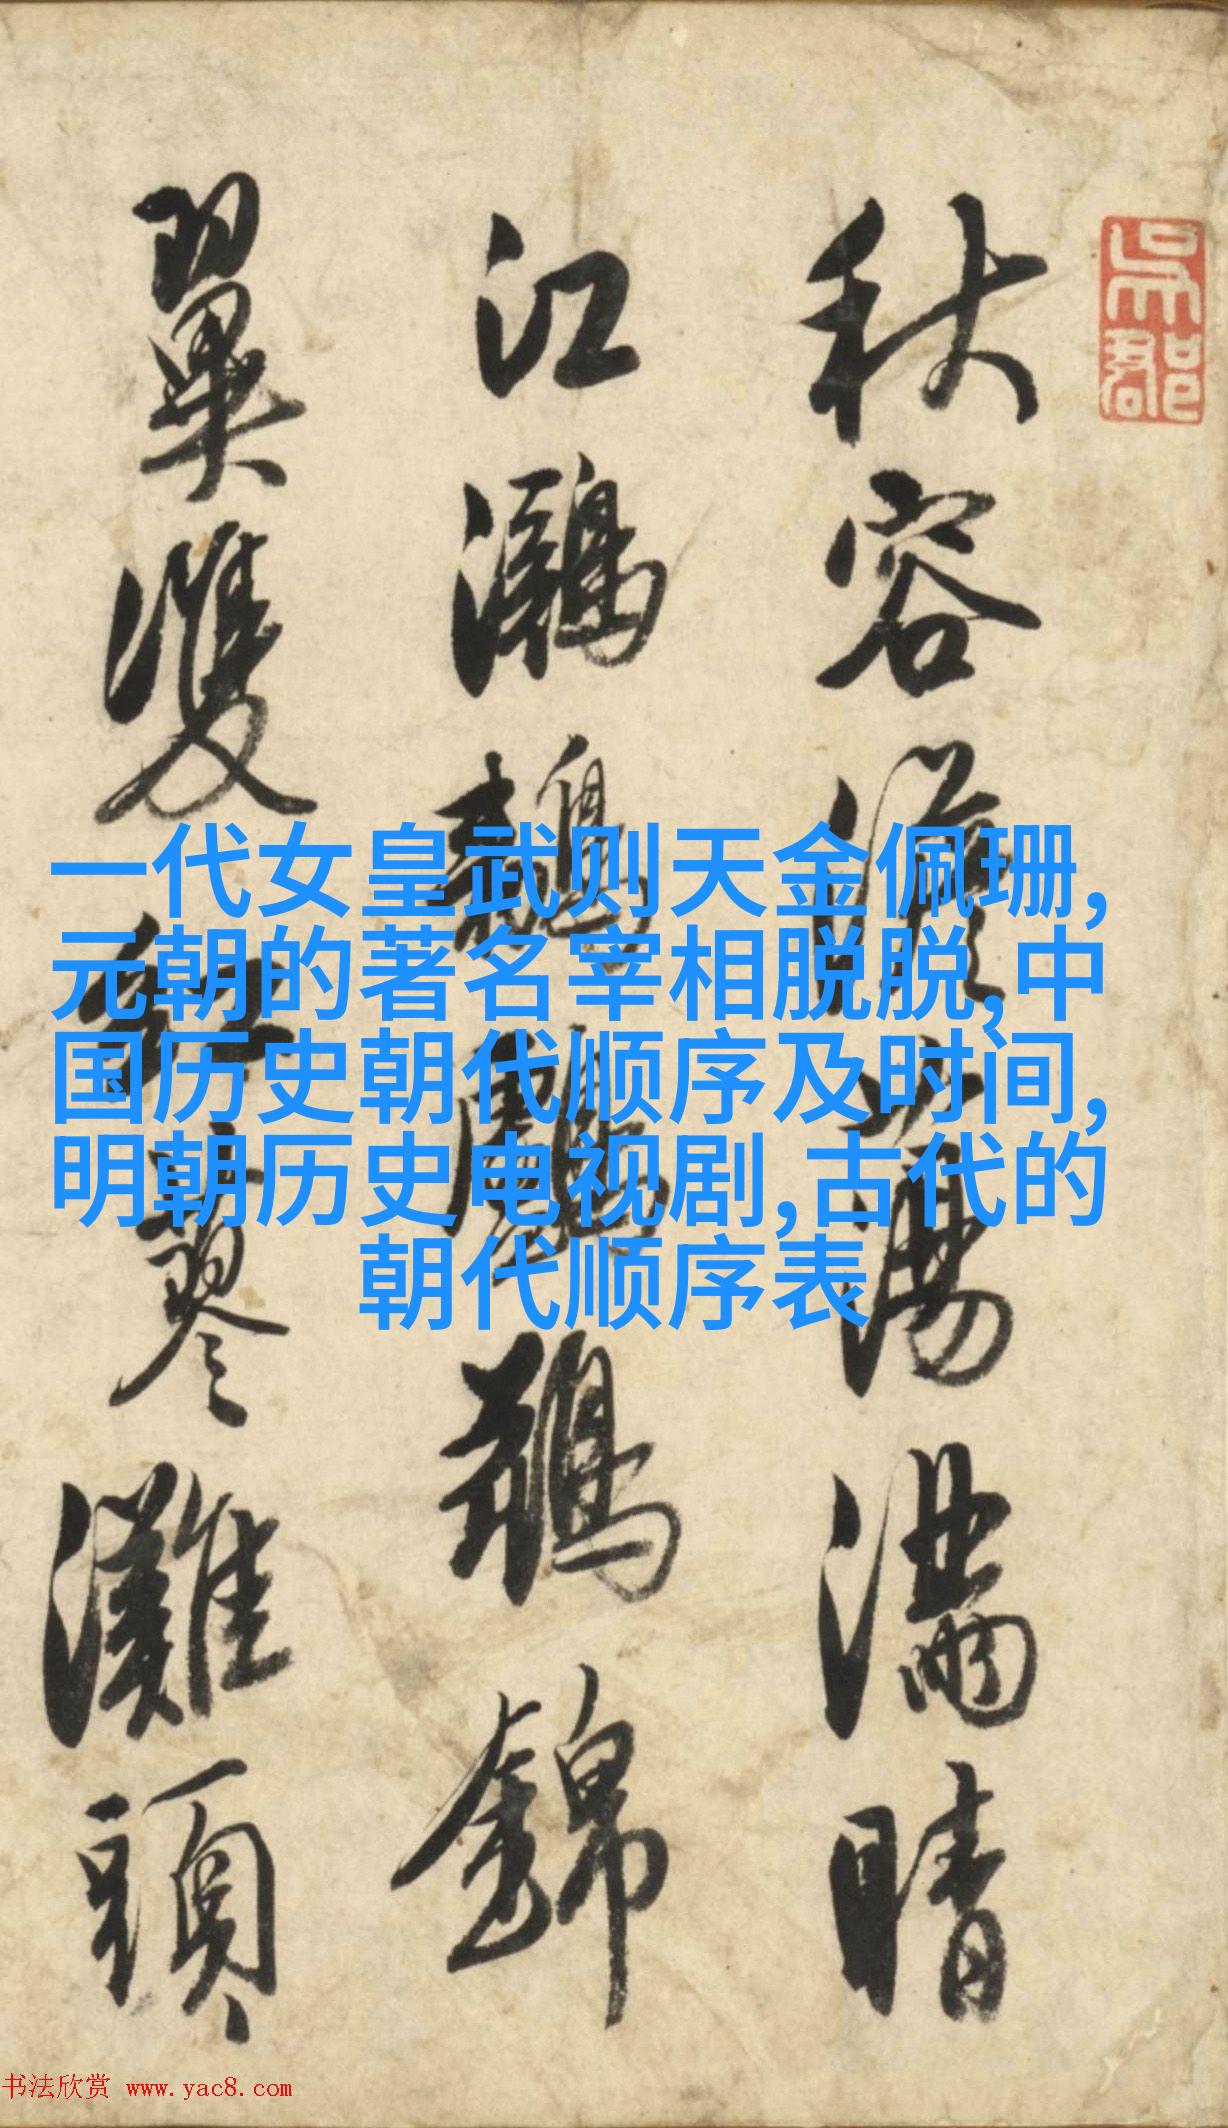 吳郡
秋容澹蕩滿晴
江㶉鶒鸕鶿錦
翼雙紅蓼灘頭
一代女皇武则天金佩珊,
元朝的著名宰相脱脱,中
国历史朝代顺序及时间,
明朝历史电视剧,古代的
朝代顺序表
书法欣赏 www.yac8.com